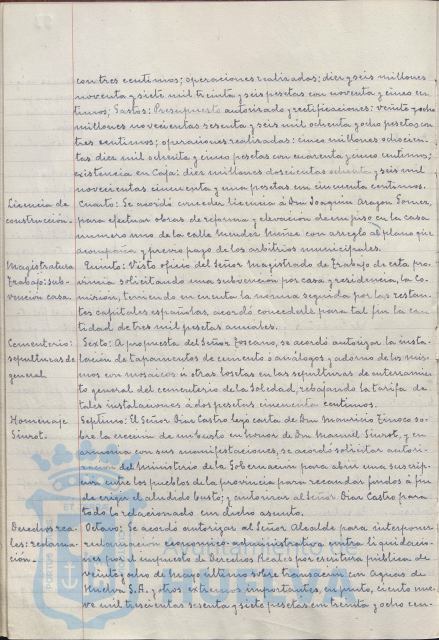 con tres centimos; operaciones realizadas: diez y seis millones
noventa y siete mil treinta y seis pesetas con noventa y cinco cen-
timos; Gastos: Presupuesto autorizado y rectificaciones: veinte y ocho
millones novecientas sesenta y seis mil ochenta y ocho pesetas con
tres centimos; operaciones realizadas: cinco millones ochocien-
tas diez mil ochenta y cinco pesetas con cuarenta y cinco centimos;
existencia en Caja: diez millones doscientas ochenta y seis mil
novecientas cincuenta y una pesetas con cincuenta centimos.
Licencia de
construcción.
Cuarto: Se acordó conceder licencia á Don Joaquin Aragon Gomez,
para efectuar obras de reforma y elevación de un piso en la casa
numero uno de la calle Mendez Nuñez con arreglo al plano que
acompaña y previo pago de los arbitrios municipales.
Magistratura
Trabajo: sub-
vención casa.
Quinto: Visto oficio del Señor Magistrado de Trabajo de esta pro-
vincia solicitando una subvención por casa y residencia, la Co-
mision, teniendo en cuenta la norma seguida por las restan-
tes capitales españolas, acordó concederle para tal fin la can-
tidad de tres mil pesetas anuales.
Cementerio:
sepulturas de
general
Sexto: A propuesta del Señor Toscano, se acordó autorizar la insta-
lación de tapamentos de cemento ó analogos y adorno de los mis-
mos con mosaicos ú otras losetas en las sepulturas de enterramien-
to general del cementerio de la Soledad, rebajando la tarifa de
tales instalaciones á dos pesetas cincuenta centimos.
Homenaje
Siurot.
Septimo: El Señor Diaz Castro leyó carta de Don Mauricio Tinoco so-
bre la ereccion de un busto en honor de Don Manuel Siurot, y en
armonia con sus manifestaciones, se acordó solicitar autori-
zacion del Ministerio de la Gobernación para abrir una suscrip-
cion entre los pueblos de la provincia para recaudar fondos á fin
de erigir el aludido busto; y autorizar al Señor Diaz Castro para
todo lo relacionado con dicho asunto.
Derechos rea-
les: reclama-
ción.
Octavo: Se acordó autorizar al Señor Alcalde para interponer
reclamación economico-administrativa contra liquidacio-
nes por el impuesto de Derechos Reales por escritura pública de
veinte y ocho de Mayo último sobre transacion con Aguas de
Huelva S.A. y otros extremos importantes, en junto, ciento nue-
ve mil trescientas sesenta y siete pesetas con treinta y ocho cen-
Ayuntamiento de